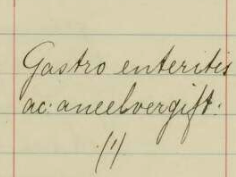 Gastro enteritis
ac. aneelvergift.
(1)